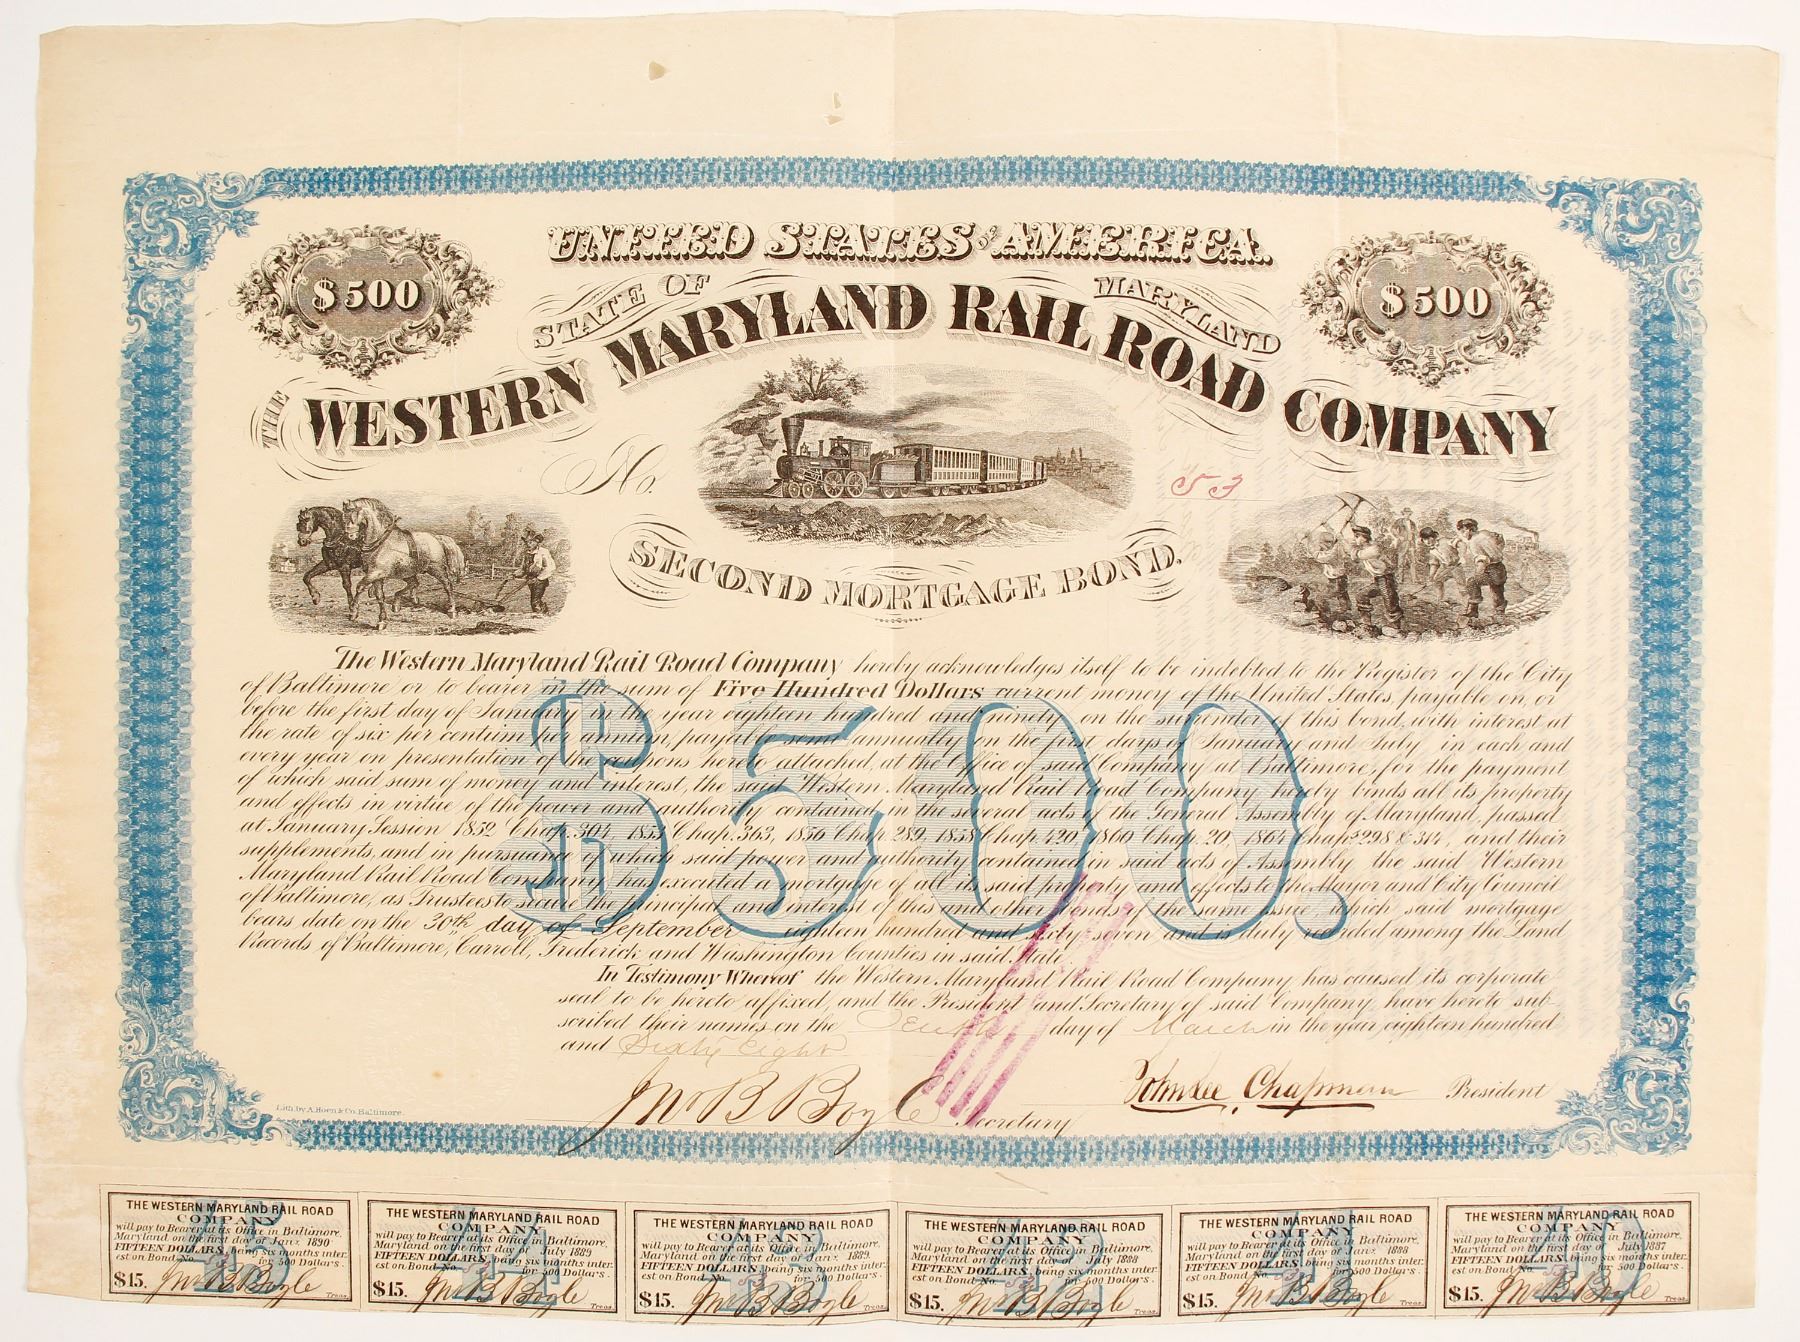 UNITED STATES OF AMERICA.
STATE OF MARYLAND
$500
$500
THE WESTERN MARYLAND RAIL ROAD COMPANY
No. 53
SECOND MORTGAGE BOND.
The Western Maryland Rail Road Company hereby acknowledges itself to be indebted to the Register of the City
of Baltimore or to bearer in the sum of Five Hundred Dollars current money of the United States, payable on, or
before the first day of January in the year eighteen hundred and ninety on the surrender of this bond, with interest at
the rate of six per centum per annum, payable semi annually on the first days of January and July in each and
every year on presentation of the coupons hereto attached, at the Office of said Company at Baltimore, for the payment
of which said sum of money and interest, the said Western Maryland Rail Road Company hereby binds all its property
and effects in virtue of the power and authority contained in the several acts of the General Assembly of Maryland, passed
at January Session 1852 Chap. 304, 1853 Chap. 363, 1856 Chap. 289, 1858 Chap 420, 1860 Chap. 20, 1864 Chaps 298 & 314, and their
supplements, and in pursuance of which said power and authority contained in said acts of Assembly the said Western
Maryland Rail Road Company has executed a mortgage of all its said property and effects to the Mayor and City Council
of Baltimore, as Trustees to secure the principal and interest of this and other bonds of the same issue, which said mortgage
bears date on the 30th day of September eighteen hundred and sixty seven and is duly recorded among the Land
Records of Baltimore, Carroll, Frederick and Washington Counties in said State.
$500.
In Testimony Whereof the Western Maryland Rail Road Company, has caused its corporate
seal to be hereto affixed, and the President and Secretary of said Company, have hereto sub-
scribed their names on the Tenth day of March in the year eighteen hundred
and Sixty eight
Jno B Boyle Secretary
John Lee Chapman President
Lith. by A. Hoen & Co. Baltimore.
THE WESTERN MARYLAND RAIL ROAD
COMPANY
will pay to Bearer at its Office in Baltimore,
Maryland on the first day of Jany. 1890
FIFTEEN DOLLARS, being six months inter-
est on Bond No. for 500 Dollars.
$15. Jno B Boyle Treas.
THE WESTERN MARYLAND RAIL ROAD
COMPANY
will pay to Bearer at its Office in Baltimore,
Maryland on the first day of July 1889
FIFTEEN DOLLARS, being six months inter-
est on Bond No. 53 for 500 Dollars.
$15. Jno B Boyle Treas.
THE WESTERN MARYLAND RAIL ROAD
COMPANY
will pay to Bearer at its Office in Baltimore,
Maryland on the first day of Jany. 1889.
FIFTEEN DOLLARS, being six months inter-
est on Bond No. 53 for 500 Dollars.
$15. Jno B Boyle Treas.
THE WESTERN MARYLAND RAIL ROAD
COMPANY
will pay to Bearer at its Office in Baltimore,
Maryland on the first day of July 1888
FIFTEEN DOLLARS, being six months inter-
est on Bond No. 53 for 500 Dollars.
$15. Jno B Boyle Treas.
THE WESTERN MARYLAND RAIL ROAD
COMPANY
will pay to Bearer at its Office in Baltimore,
Maryland on the first day of Jany. 1888
FIFTEEN DOLLARS, being six months inter-
est on Bond No. 53 for 500 Dollars.
$15. Jno B Boyle Treas.
THE WESTERN MARYLAND RAIL ROAD
COMPANY
will pay to Bearer at its Office in Baltimore,
Maryland on the first day of July 1887
FIFTEEN DOLLARS, being six months inter-
est on Bond No. 53 for 500 Dollars.
$15. Jno B Boyle Treas.